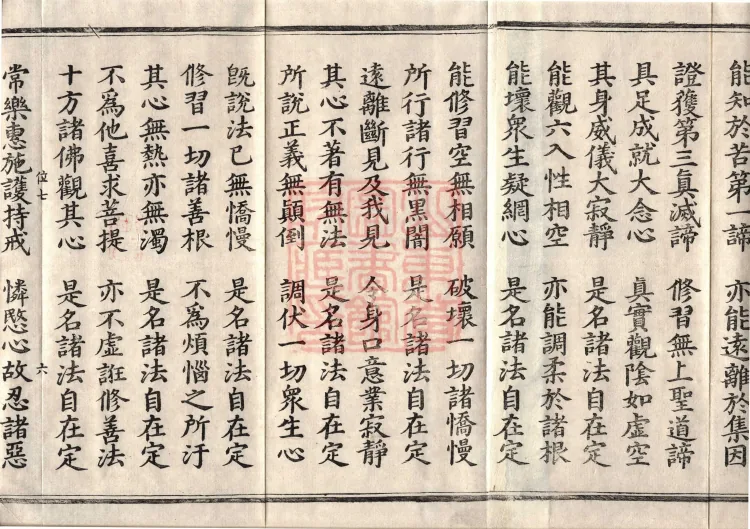 能知於苦第一諦　亦能遠離於集因
證獲第三真滅諦　修習無上聖道諦
具足成就大念心　真實觀陰如虛空
其身威儀大寂靜　是名諸法自在定
能觀六入性相空　亦能調柔於諸根
能壞眾生疑網心　是名諸法自在定
能修習空無相願　破壞一切諸憍慢
所行諸行無黑闇　是名諸法自在定
遠離斷見及我見　令身口意業寂靜
其心不著有無法　是名諸法自在定
所說正義無顛倒　調伏一切眾生心
既說法已無憍慢　是名諸法自在定
修習一切諸善根　不為煩惱之所汙
其心無熱亦無濁　是名諸法自在定
不為他喜求菩提　亦不虛誑修善法
十方諸佛觀其心　是名諸法自在定
位七　六
常樂惠施護持戒　憐愍心故忍諸惡